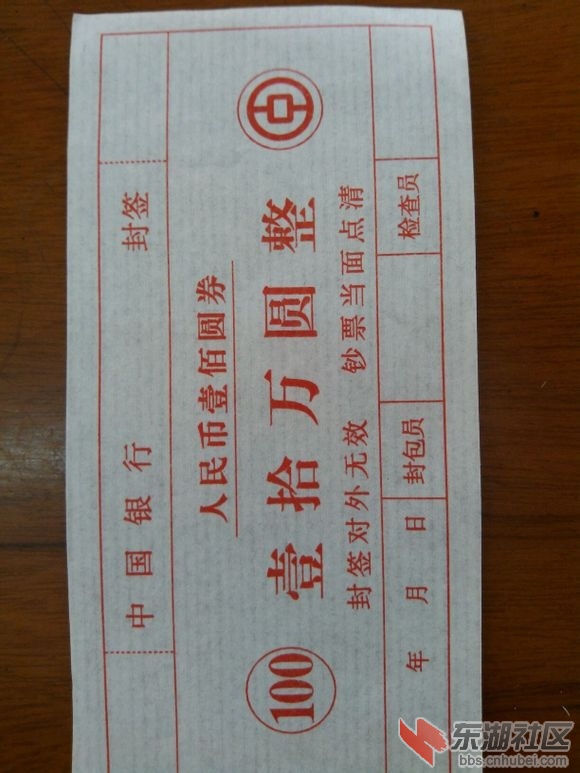 中国银行 封签
人民币壹佰圆券
100 壹拾万圆整
封签对外无效 钞票当面点清
年 月 日 封包员 检查员
东湖社区
bbs.cnhubei.com